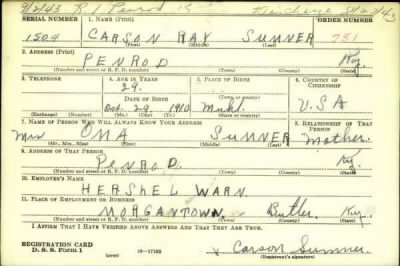 9/2/43 R 1 Penrod
SERIAL NUMBER 1. NAME (Print) ORDER NUMBER
1504 CARSON RAY SUMNER 751
2. ADDRESS (Print)
PENROD Ky.
(Number and street or R. F. D. number) (Town) (County) (State)
3. TELEPHONE 4. AGE IN YEARS 5. PLACE OF BIRTH 6. COUNTRY OF CITIZENSHIP
29.
DATE OF BIRTH Muhl. (Town or county)
Oct 29 1910 USA
(Exchange) (Number) (Mo.) (Day) (Yr.) (State or country)
7. NAME OF PERSON WHO WILL ALWAYS KNOW YOUR ADDRESS 8. RELATIONSHIP OF THAT PERSON
Mrs OMA SUMNER Mother.
(Mr., Mrs., Miss) (First) (Middle) (Last)
9. ADDRESS OF THAT PERSON
PENROD. Ky.
(Number and street or R. F. D. number) (Town) (County) (State)
10. EMPLOYER'S NAME
HERSHEL WARN.
11. PLACE OF EMPLOYMENT OR BUSINESS
MORGANTOWN Butler. Ky.
(Number and street or R. F. D. number) (Town) (County) (State)
I AFFIRM THAT I HAVE VERIFIED ABOVE ANSWERS AND THAT THEY ARE TRUE.
REGISTRATION CARD
D. S. S. Form 1 (over) 16-17105 x Carson Sumner
(Registrant's signature)